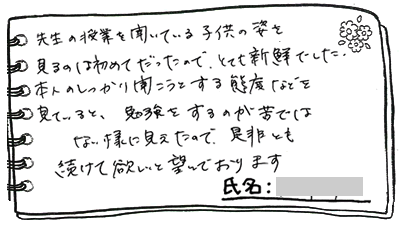 先生の授業を聞いている子供の姿を
見るのは初めてだったので、とても新鮮でした。
本人のしっかり聞こうとする態度などを
見ていると、勉強をするのが苦では
ない様に見えたので、是非とも
続けて欲しいと望んでおります
氏名: